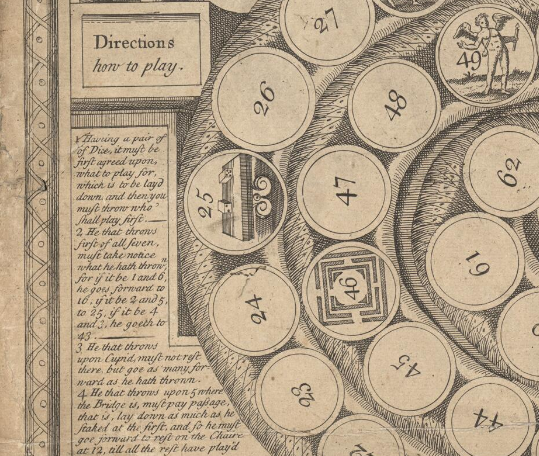 Directions
how to play.
1 Having a pair of
of Dice, it must be
first agreed upon,
what to play for,
which is to be lay'd
down, and then you
must throw who
shall play first
2 He that throws
first of all seven,
must take notice
what he hath throw,
for if it be 1 and 6
he goes forward to
16, if it be 2 and 5,
to 25, if it be 4
and 3, he goeth to
43.
3 He that throws
upon Cupid, must not rest
there, but goe as many for=
ward as he hath thrown.
4 He that throws upon 5 where
the Bridge is, must pay passage,
that is, lay down as much as he
staked at the first, and so he must
goe forward to rest on the Chaire
at 12, till all the rest have play'd
27
26
25
24
23
49
48
47
46
45
44
62
61